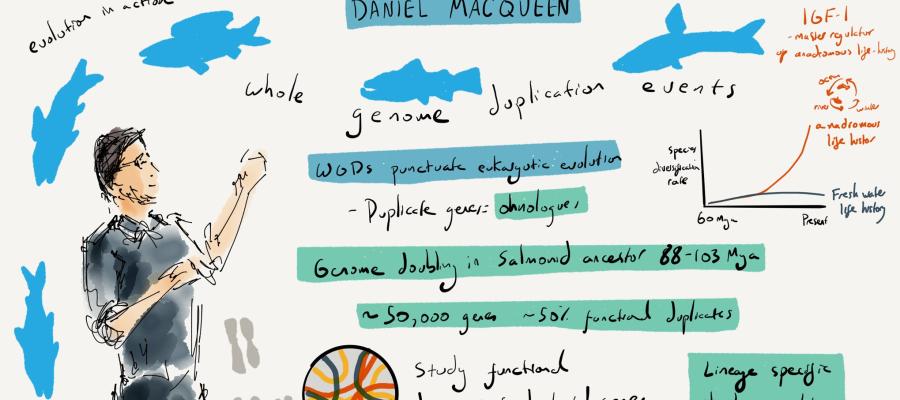 evolution in action
DANIEL MACQUEEN
whole
genome
duplication
events
IGF-1
- master regulator
of anadromous life-history
ocean
river
water
anadromous
life histor
Species
diversification
rate
60 Mya
Present
Fresh water
life history
WGDs punctuate eukaryotic evolution
- Duplicate genes = ohnologues
Genome doubling in Salmonid ancestor 88-103 Mya
~50,000 genes ~50% functional duplicates
Study functional
Lineage specific